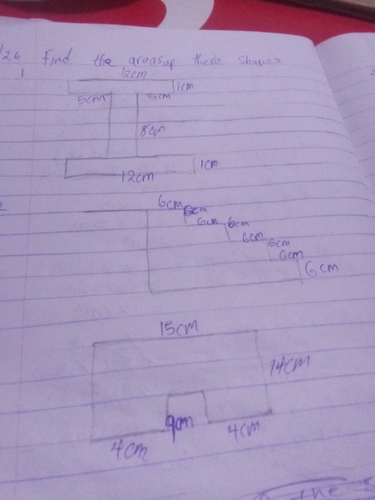 Find the areas of these shapes
1
12cm
1cm
5cm 5cm
8cm
1cm
12cm
6cm
6cm
6cm 6cm
6cm 6cm
6cm
6cm
15cm
14cm
9cm
4cm 4cm
the